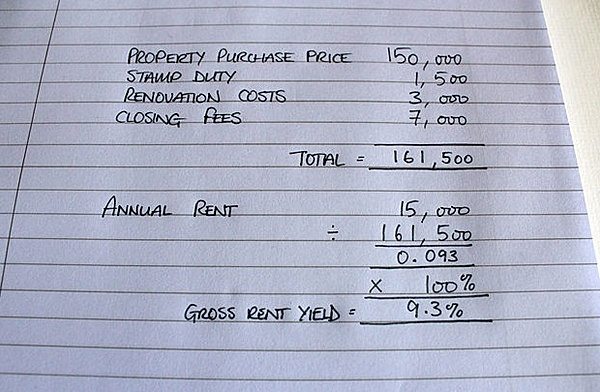 PROPERTY PURCHASE PRICE 150,000
STAMP DUTY 1,500
RENOVATION COSTS 3,000
CLOSING FEES 7,000
TOTAL = 161,500
ANNUAL RENT 15,000
÷ 161,500
0.093
X 100%
GROSS RENT YIELD = 9.3%